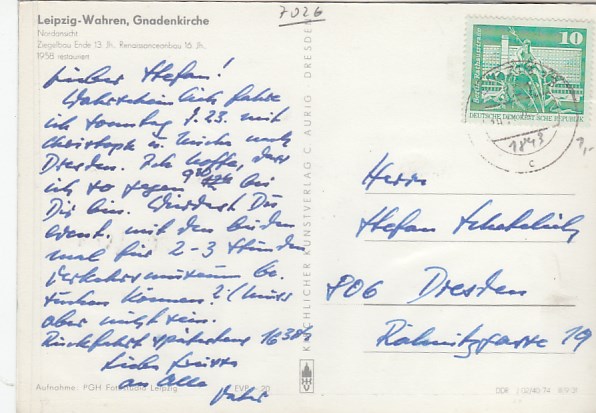 7026
Leipzig-Wahren, Gnadenkirche
Nordansicht
Ziegelbau Ende 13. Jh., Renaissanceanbau 16. Jh.,
1958 restauriert
Lieber Stefan!
Wahrscheinlich fahre
ich Sonntag 23. mit
Christoph u. nach
Dresden. Ich hoffe, dass
ich so gegen 9 bei
Dir bin. Würdest Du
event. mit den beiden
mal für 2-3 Stunden
Verkehrsmuseum be-
suchen können? (Muss
aber nicht sein.
Rückfahrt spätestens 16
Liebe Grüsse
an alle
Vater
Aufnahme: PGH Fotostudio Leipzig
EVP - 20
KIRCHLICHER KUNSTVERLAG C. AURIG DRESDEN
10
DEUTSCHE DEMOKRATISCHE REPUBLIK
1843
c
1,-
Herrn
Stefan
806 Dresden
Rähnitzgasse 19
DDR